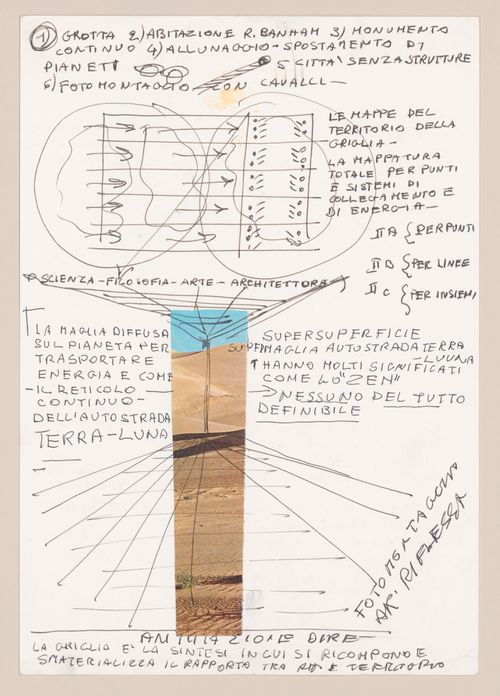 1) GROTTA 2) ABITAZIONE R. BANHAM 3) MONUMENTO
CONTINUO 4) ALLUNAGGIO - SPOSTAMENTO DI
PIANETI 5 CITTA' SENZA STRUTTURE
6) FOTOMONTAGGIO CON CAVALLI -
LE MAPPE DEL
TERRITORIO DELLA
GRIGLIA -
LA MAPPATURA
TOTALE PER PUNTI
E SISTEMI DI
COLLEGAMENTO E
DI ENERGIA -
II A { PER PUNTI
II B { PER LINEE
II C { PER INSIEMI
SCIENZA - FILOSOFIA - ARTE - ARCHITETTURA
LA MAGLIA DIFFUSA
SUL PIANETA PER
TRASPORTARE
ENERGIA E COME
- IL RETICOLO
CONTINUO -
DELL'AUTOSTRADA
TERRA - LUNA
SUPERSUPERFICIE
SUPERMAGLIA AUTOSTRADA TERRA
- LUUNA
HANNO MOLTI SIGNIFICATI
COME LO "ZEN"
NESSUNO DEL TUTTO
DEFINIBILE
FOTOMONTAGGIO
RIFLESSA
LA GRIGLIA E' LA SINTESI IN CUI SI RICOMPONE E
SMATERIALIZZA IL RAPPORTO TRA E TERRITORIO